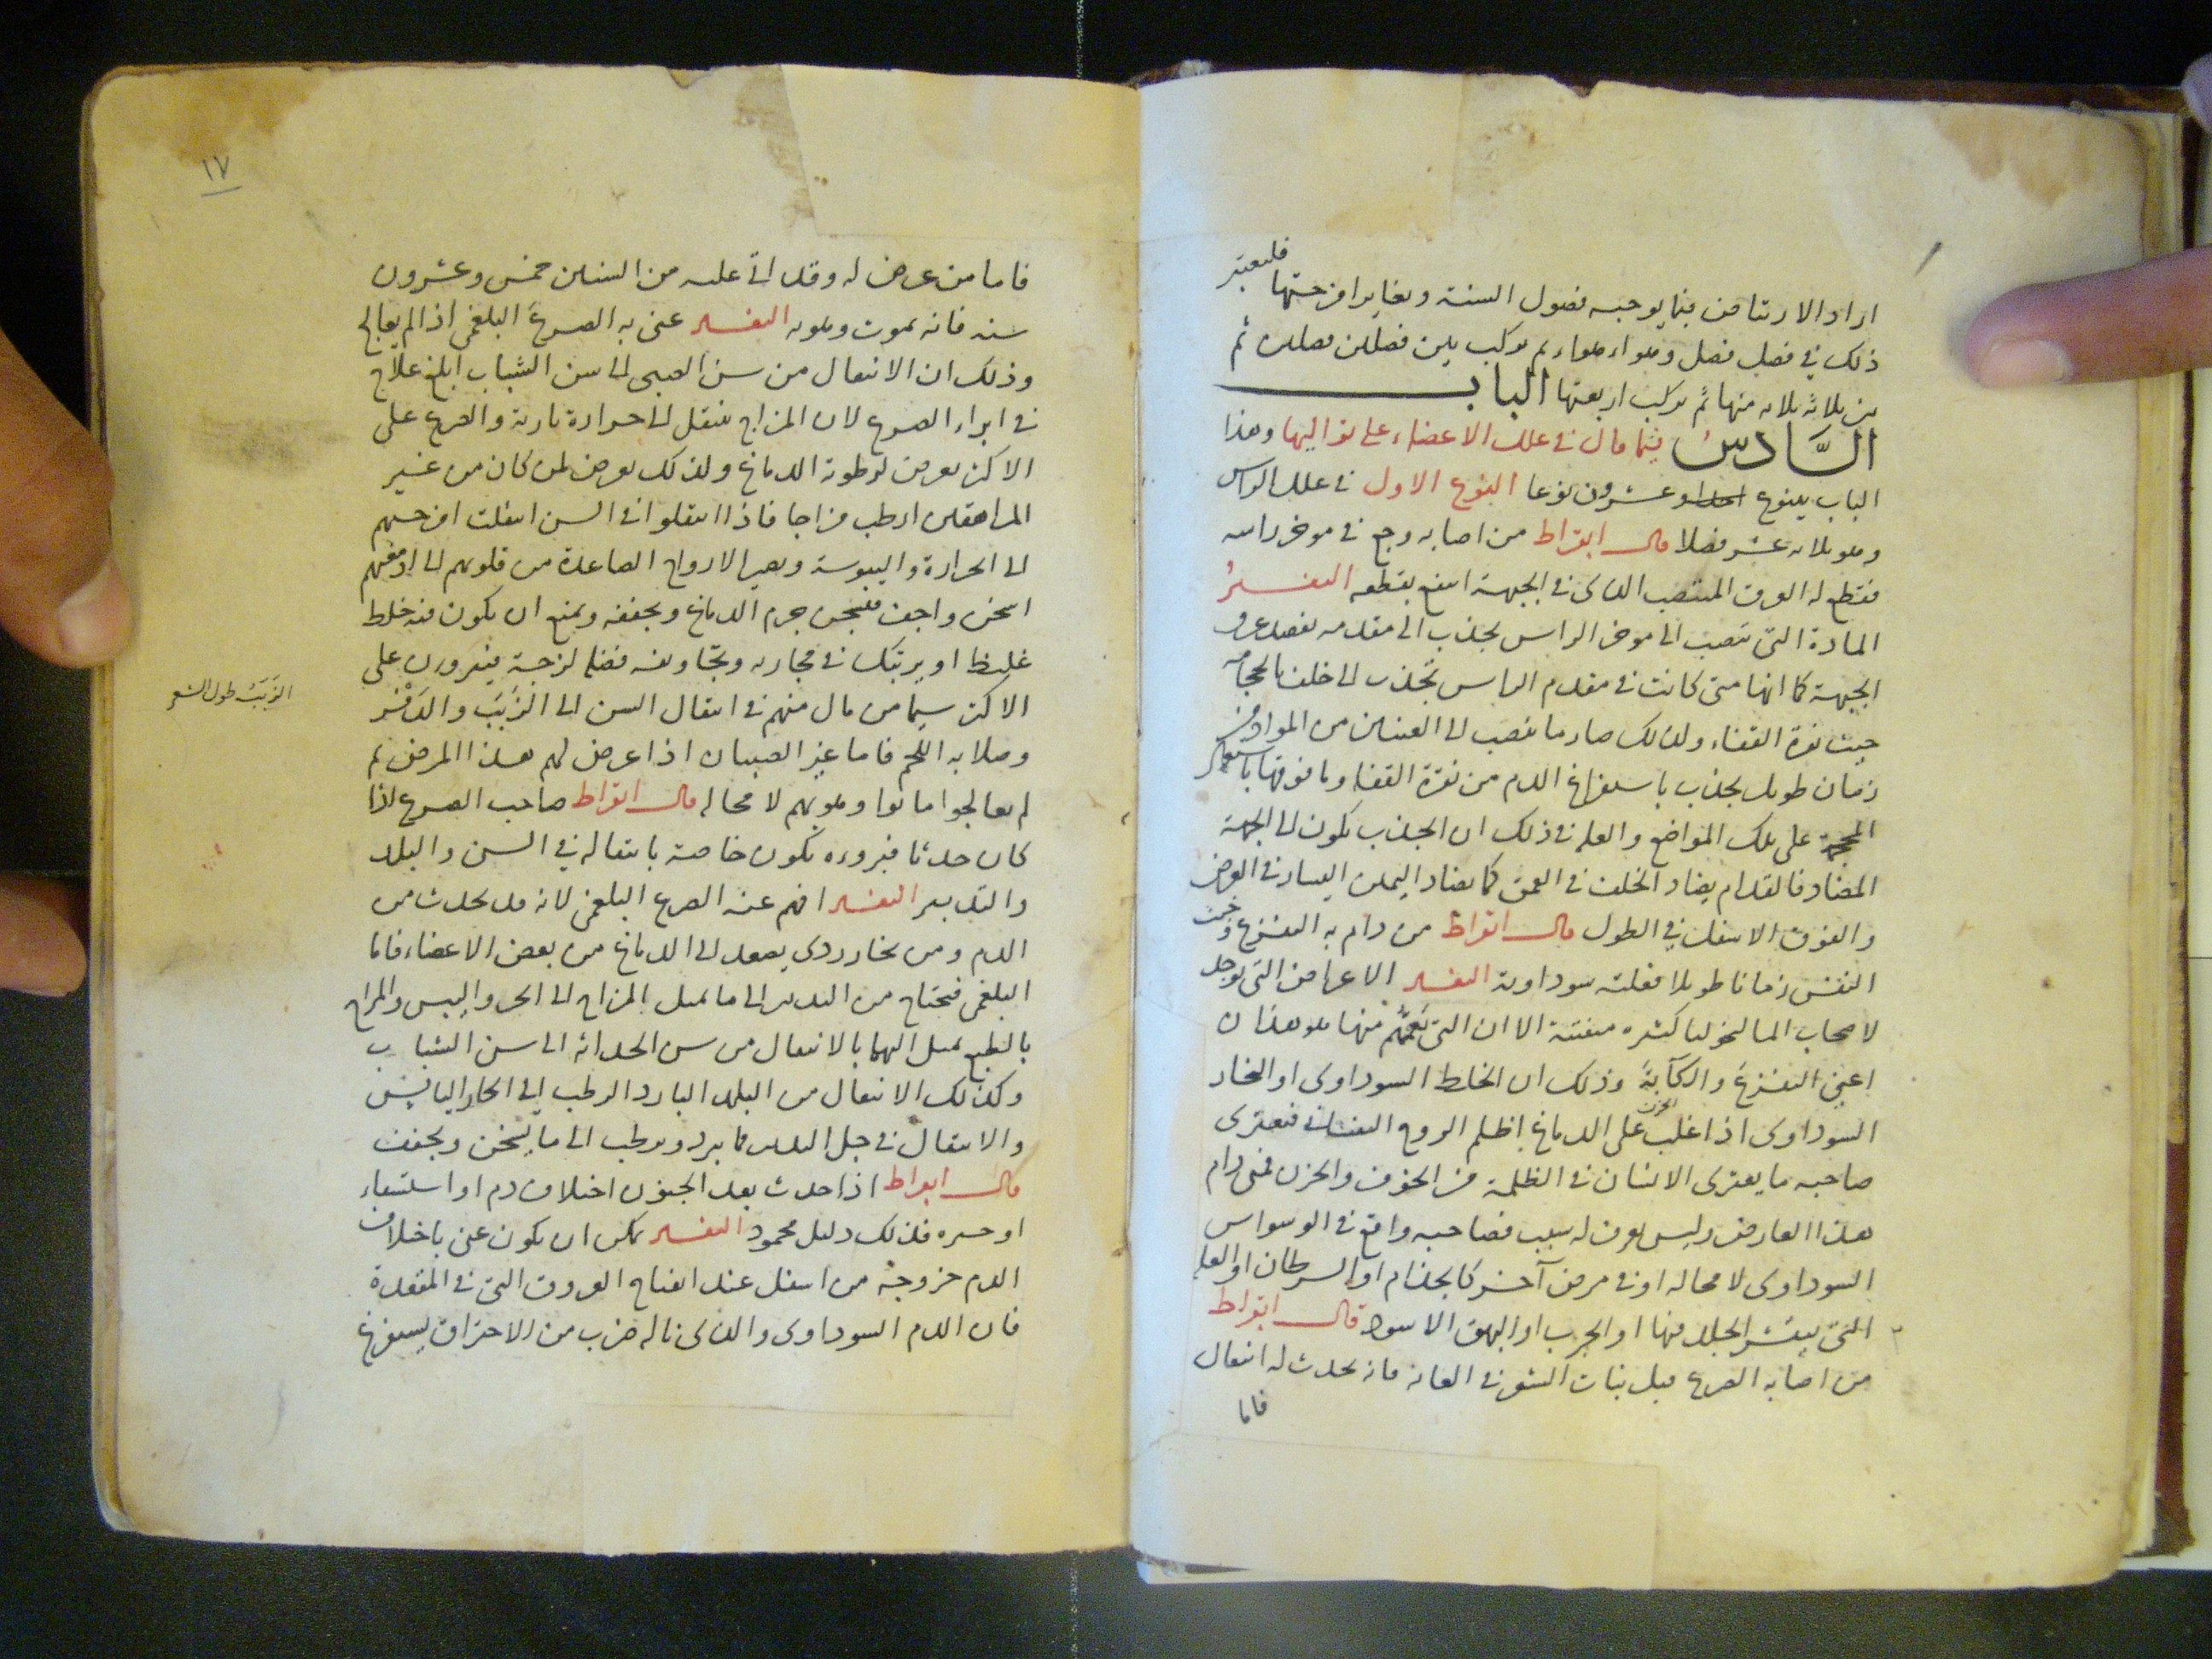 اراد الارتياض فيما يوجبه فصول السنة وتغاير امزجتها فليعتبر
ذلك في فصل فصل وهواء هواء ثم يركب بين فصلين فصلين ثم
بين ثلاثة ثلاثة منها ثم يركب اربعتها الباب
السادس فيما قال في علل الاعضاء على تواليها وهذا
الباب يتنوع احدا وعشرون نوعا النوع الاول في علل الراس
وهو ثلاثة عشر فصلا قال ابقراط من اصابه وجع في موخر راسه
فقطع له العرق المنتصب الذي في الجبهة انتفع بقطعه التفسير
المادة التي تنصب الى موخر الراس تجذب الى مقدمه بفصد عرق
الجبهة كما انها متى كانت في مقدم الراس تجذب الى خلف بالحجامة
حيث نقرة القفاء ولذلك صار ما ينصب الى العينين من المواد من
زمان طويل يجذب باستفراغ الدم من نقرة القفاء وما فوقها باستعمال
المحجمة على تلك المواضع والعلة في ذلك ان الجذب يكون الى الجهة
المضاد فالقدام يضاد الخلف في العمق كما يضاد اليمين اليسار في العرض
والفوق الاسفل في الطول قال ابقراط من دام به التفزع وخبث
النفس زمانا طويلا فعلته سوداوية التفسير الاعراض التي توجد
لاصحاب الماليخوليا كثيره مفننة الا ان التي تعمهم منها هو هذان
اعني التفزع والكآبة وذلك ان الخلط السوداوى او البخار
السوداوى اذا غلب على الدماغ اظلم الروح النفسانى فيعترى
صاحبه ما يعترى الانسان في الظلمة من الخوف والحزن فمتى دام
هذا العارض وليس يعرف له سبب فصاحبه واقع في الوسواس
السوداوى لا محاله او في مرض آخر كالجذام او السرطان او العلة
التي يتقشر الجلد منها او الجرب او البهق الاسود قال ابقراط
من اصابه الصرع قبل نبات الشعر في العانة فانه يحدث له انتقال
فاما
١٧
فاما من عرض له وقد اتى عليه من السنين خمس وعشرون
سنه فانه يموت وهو به التفسير عنى به الصرع البلغمى اذا لم يعالج
وذلك ان الانتقال من سن الصبى الى سن الشباب ابلغ علاج
في ابراء الصرع لان المزاج ينتقل الى حرارة نارية والصرع على
الاكثر يعرض لرطوبة الدماغ ولذلك يعرض لمن كان من غير
المراهقين ارطب مزاجا فاذا انتقلوا في السن انتقلت امزجتهم
الى الحرارة واليبوسة وتصير الارواح الصاعدة من قلوبهم الى ادمغتهم
اسخن واجف فيسخن جرم الدماغ ويجففه ويمنع ان يكون فيه خلط
غليظ او يرتبك في مجاريه وتجاويفه فضله لزجة فيبرءون على
الاكثر سيما من مال منهم في انتقال السن الى الزبب والدفر
الزبب طول الشعر
وصلابه اللحم فاما غير الصبيان اذا عرض لهم هذا المرض ثم
لم يعالجوا ماتوا وهو بهم لا محاله قال ابقراط صاحب الصرع اذا
كان حدثا فبروه يكون خاصة بانتقاله في السن والبلد
والتدبير التفسير افهم عنه الصرع البلغمى لانه قد يحدث من
الدم ومن بخار ردى يصعد الى الدماغ من بعض الاعضاء فاما
البلغمى فيحتاج من التدبير الى ما يميل المزاج الى الحر واليبس والمزاج
بالطبع يميل اليهما بالانتقال من سن الحداثه الى سن الشباب
وكذلك الانتقال من البلد البارد الرطب الى الحار اليابس
والانتقال في جل التدبير مما يبرد ويرطب الى ما يسخن ويجفف
قال ابقراط اذا حدث بعد الجنون اختلاف دم او استسقاء
او حيره فذلك دليل محمود التفسير يمكن ان يكون عنى باختلاف
الدم خروجه من اسفل عند انفتاح العروق التي في المقعدة
فان الدم السوداوى والذى ناله ضرب من الاحتراق يستفرغ